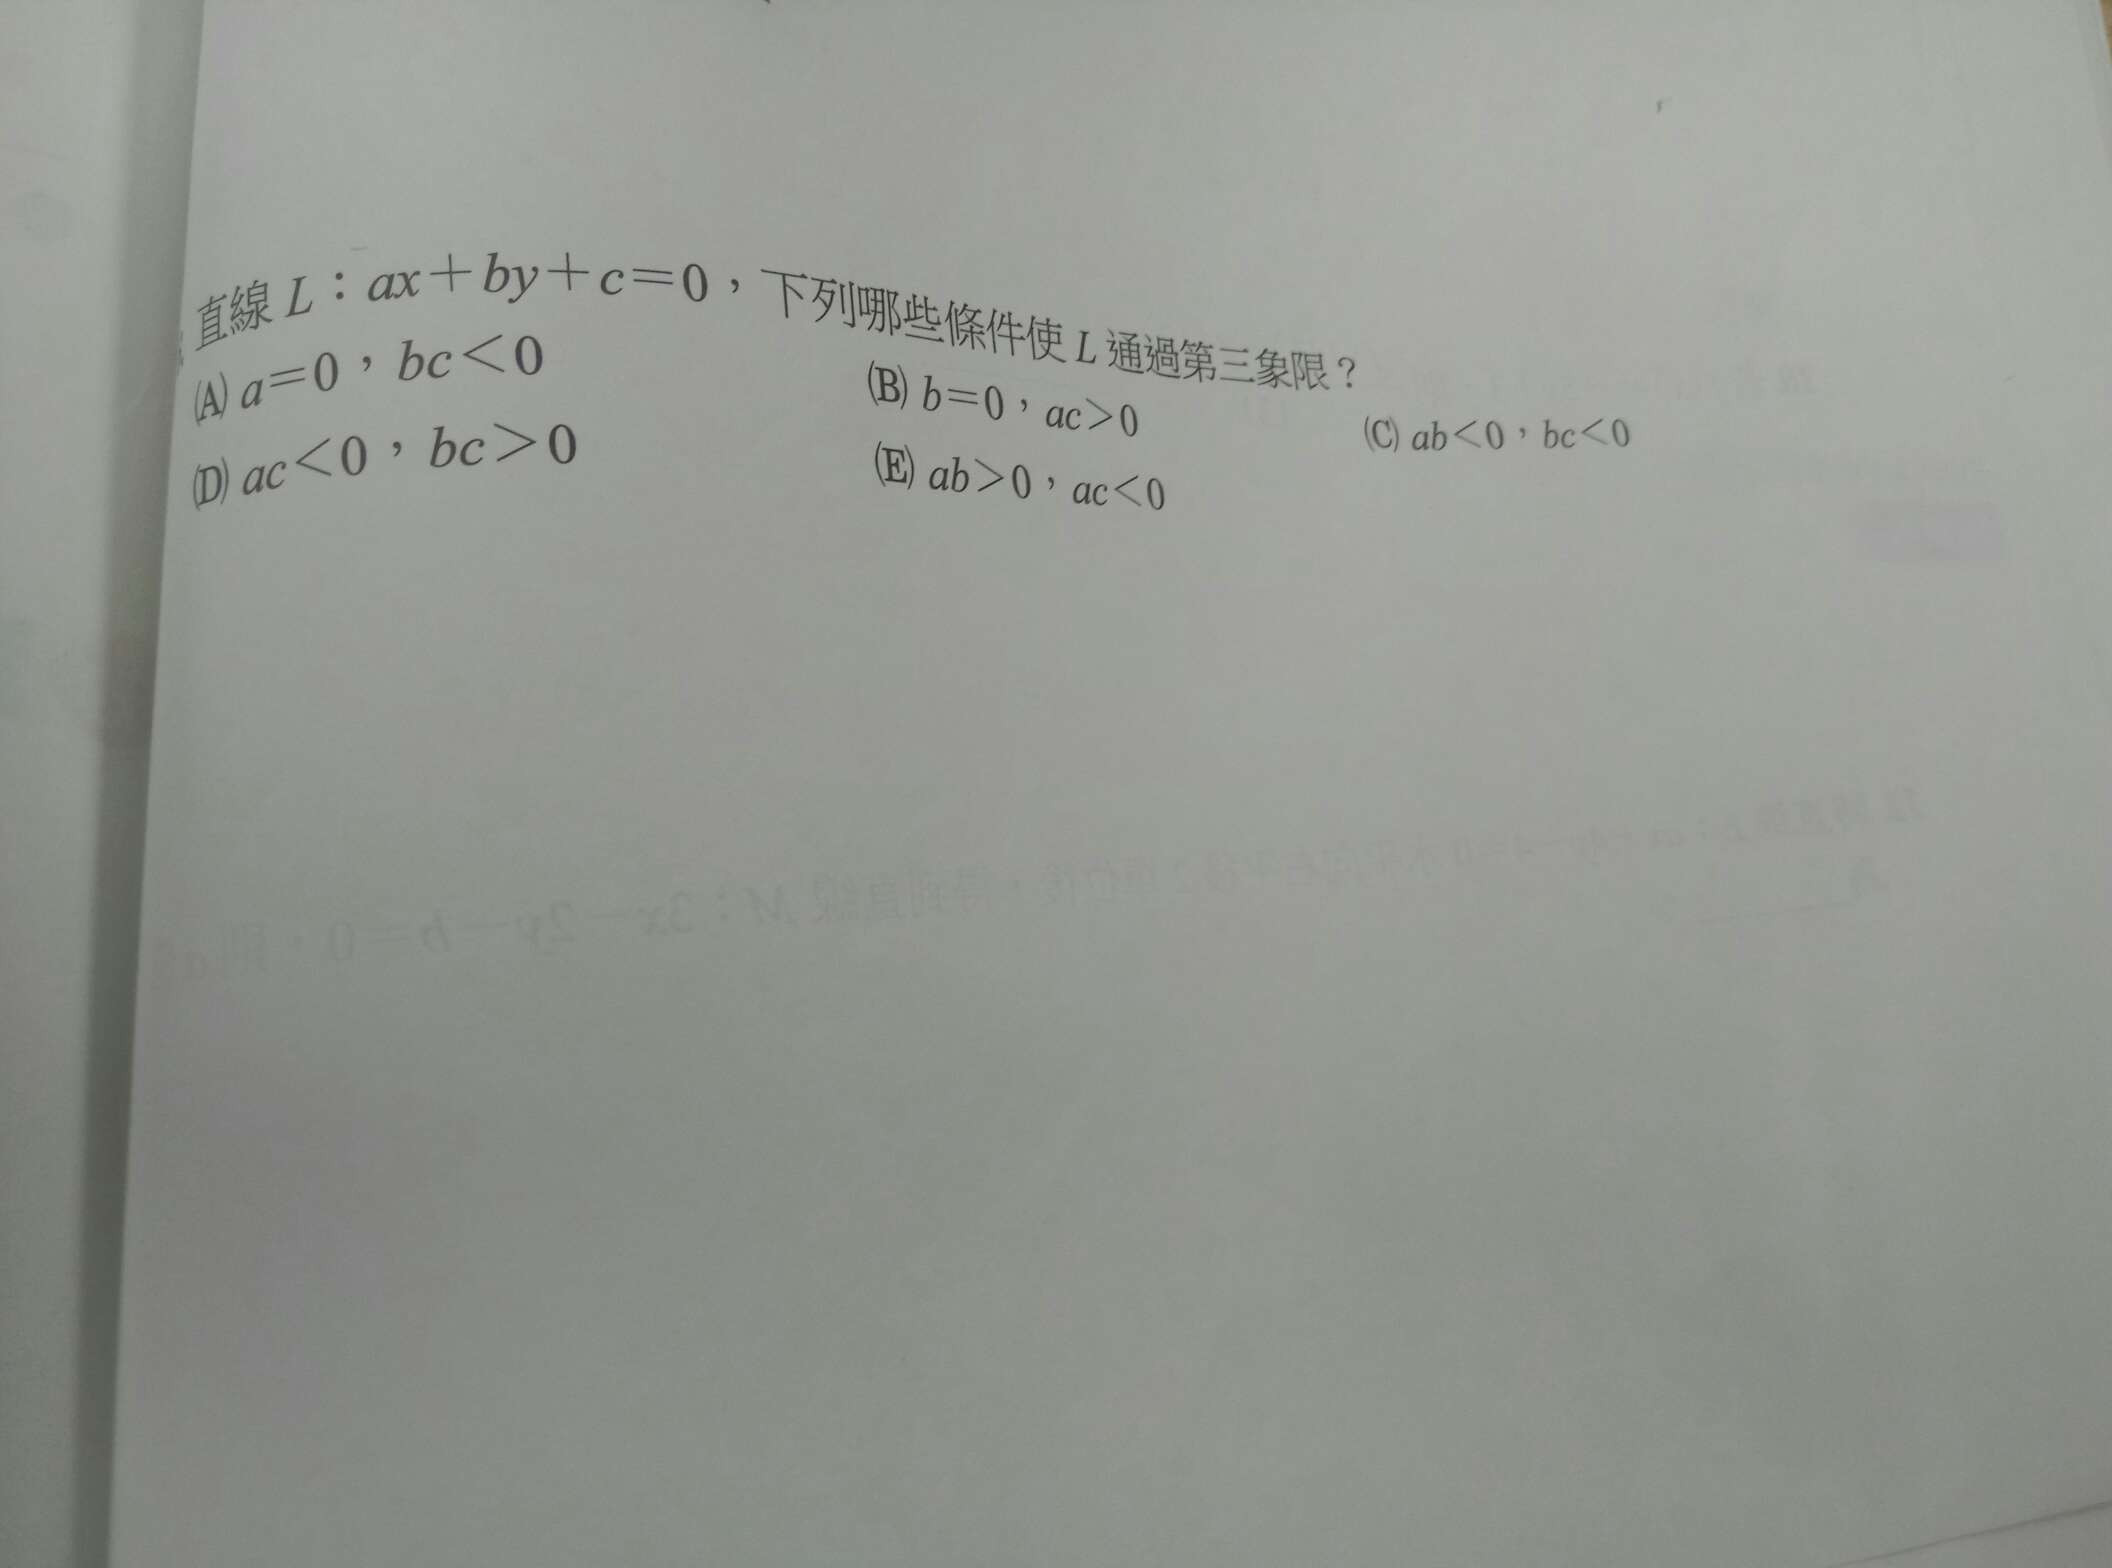 直線 L：ax＋by＋c＝0，下列哪些條件使 L 通過第三象限？
(A) a＝0，bc＜0 (B) b＝0，ac＞0 (C) ab＜0，bc＜0
(D) ac＜0，bc＞0 (E) ab＞0，ac＜0